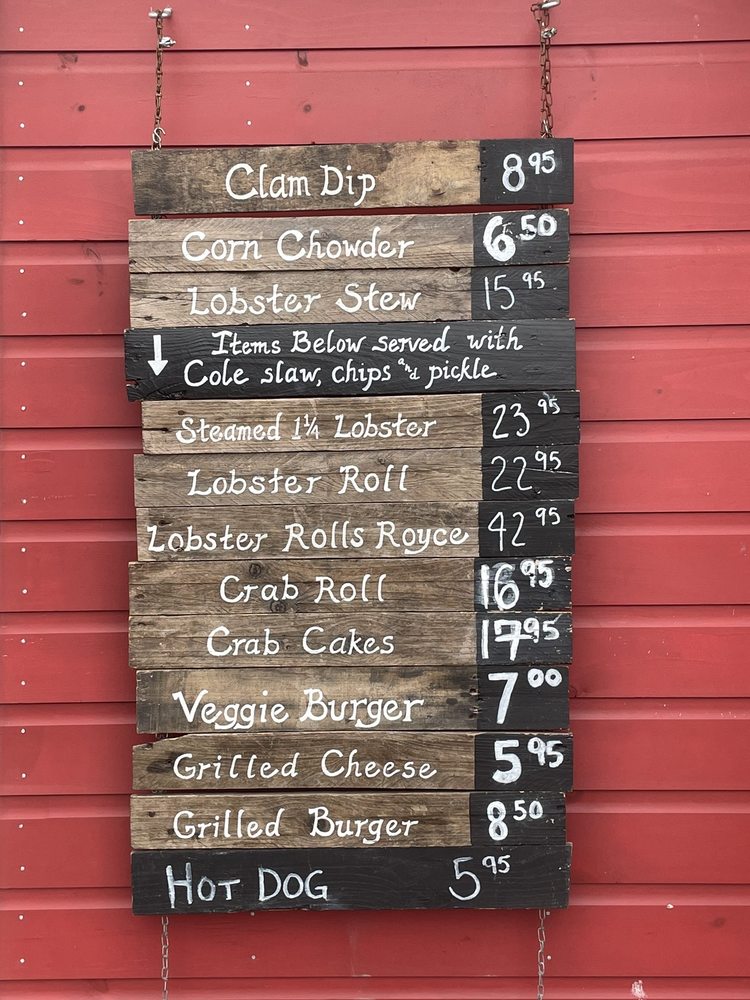 Clam Dip 8 95
Corn Chowder 6.50
Lobster Stew 15 95
↓ Items Below served with
Cole slaw, chips and pickle
Steamed 1¼ Lobster 23 95
Lobster Roll 22 95
Lobster Rolls Royce 42 95
Crab Roll 16 95
Crab Cakes 17 95
Veggie Burger 7 00
Grilled Cheese 5 95
Grilled Burger 8 50
HOT DOG 5 95